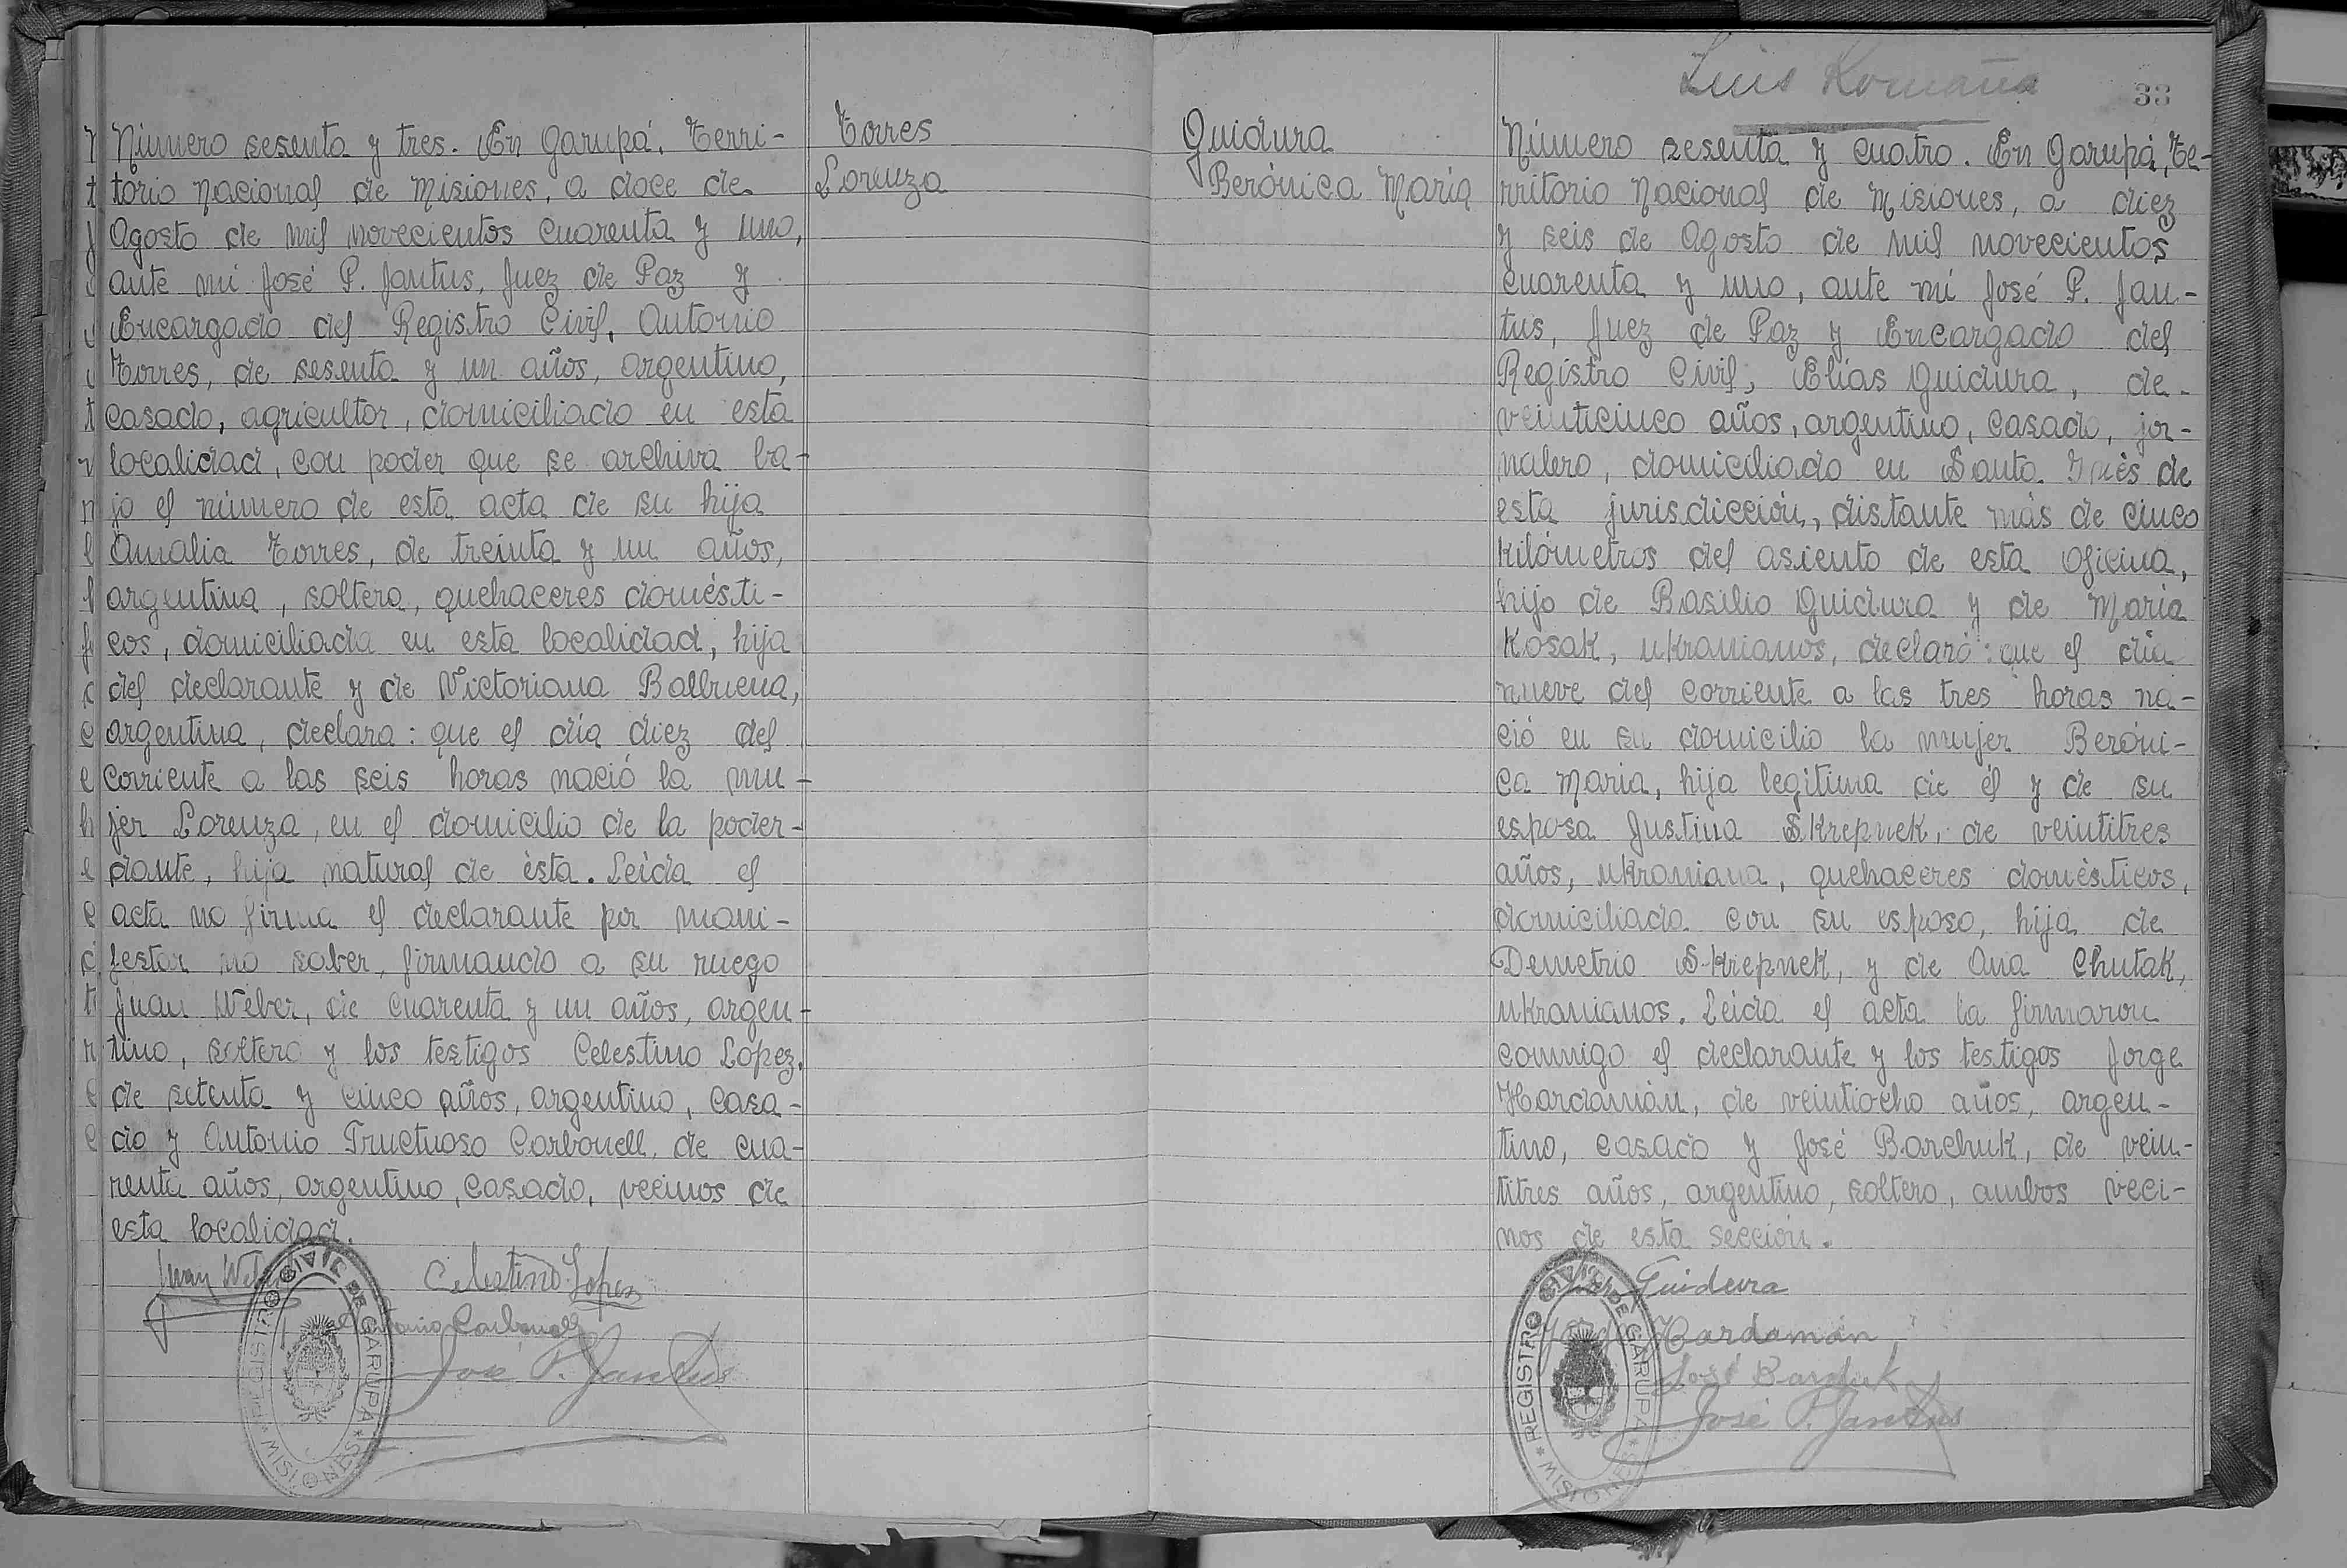 Número sesenta y tres. En Garupá, Terri-
torio Nacional de Misiones, a doce de
Agosto de mil novecientos cuarenta y uno,
ante mí José P. Jantus, Juez de Paz y
Encargado del Registro Civil, Antonio
Torres, de sesenta y un años, argentino,
casado, agricultor, domiciliado en esta
localidad, con poder que se archiva ba-
jo el número de esta acta de su hija
Amalia Torres, de treinta y un años,
argentina, soltera, quehaceres domésti-
cos, domiciliada en esta localidad, hija
del declarante y de Victoriana Balbuena,
argentina, declara: que el día diez del
corriente a las seis horas nació la mu-
jer Lorenza, en el domicilio de la poder-
dante, hija natural de ésta. Leída el
acta no firma el declarante por mani-
festar no saber, firmando a su ruego
Juan Weber, de cuarenta y un años, argen-
tino, soltero y los testigos Celestino Lopez,
de setenta y cinco años, argentino, casa-
do y Antonio Fructuoso Carbonell, de cua-
renta años, argentino, casado, vecinos de
esta localidad.
Juan Weber
Celestino Lopez
Antonio Carbonell
José P. Jantus
REGISTRO CIVIL DE GARUPA * MISIONES *
Torres
Lorenza
Luis Romaña
33
Quidura
Berónica María
Número sesenta y cuatro. En Garupá, Te-
rritorio Nacional de Misiones, a diez
y seis de Agosto de mil novecientos
cuarenta y uno, ante mí José P. Jan-
tus, Juez de Paz y Encargado del
Registro Civil, Elías Quidura, de
veinticinco años, argentino, casado, jor-
nalero, domiciliado en Santa Inés de
esta jurisdicción, distante más de cinco
kilómetros del asiento de esta oficina,
hijo de Basilio Quidura y de María
Kosak, ukranianos, declaró: que el día
nueve del corriente a las tres horas na-
ció en su domicilio la mujer Beróni-
ca María, hija legítima de él y de su
esposa Justina Skrepnek, de veintitres
años, ukraniana, quehaceres domésticos,
domiciliada con su esposo, hija de
Demetrio Skrepnek, y de Ana Chutak,
ukranianos. Leída el acta la firmaron
conmigo el declarante y los testigos Jorge
Hardamán, de veintiocho años, argen-
tino, casado y José Barchuk, de vein-
titres años, argentino, soltero, ambos veci-
nos de esta sección.
Guidura
Jorge Hardamán
José Barchuk
José P. Jantus
REGISTRO CIVIL DE GARUPA * MISIONES *